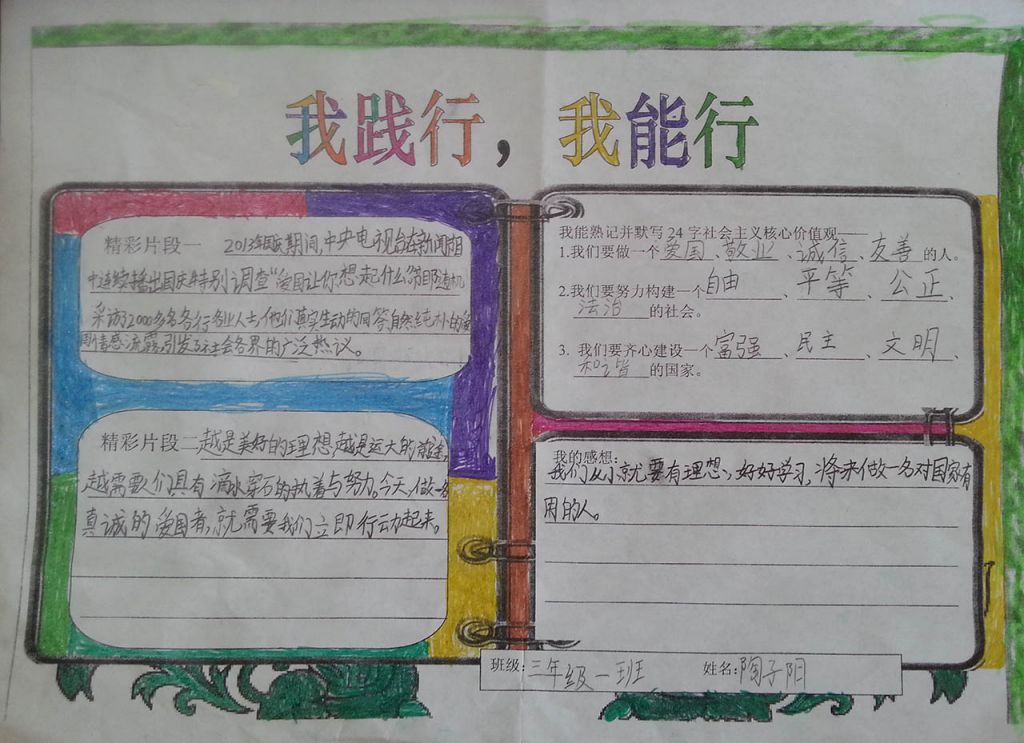 我践行，我能行
精彩片段一 2013年国庆期间,中央电视台在新闻节目
中连续播出国庆特别调查“爱国让你想起什么”,节目随机
采访了2000多名各行各业人士,他们真实生动的回答,自然纯朴的爱
国情感流露,引发了社会各界的广泛热议。
精彩片段二 越是美好的理想,越是远大的前途,
越需要人们具有滴水穿石的执着与努力。今天,做一名
真诚的爱国者,就需要我们立即行动起来。
我能熟记并默写24字社会主义核心价值观——
1.我们要做一个爱国、敬业、诚信、友善的人。
2.我们要努力构建一个自由、平等、公正、
法治的社会。
3.我们要齐心建设一个富强、民主、文明、
和谐的国家。
我的感想:
我们从小就要有理想,好好学习,将来做一名对国家有
用的人。
班级:三年级一班 姓名:陶子阳